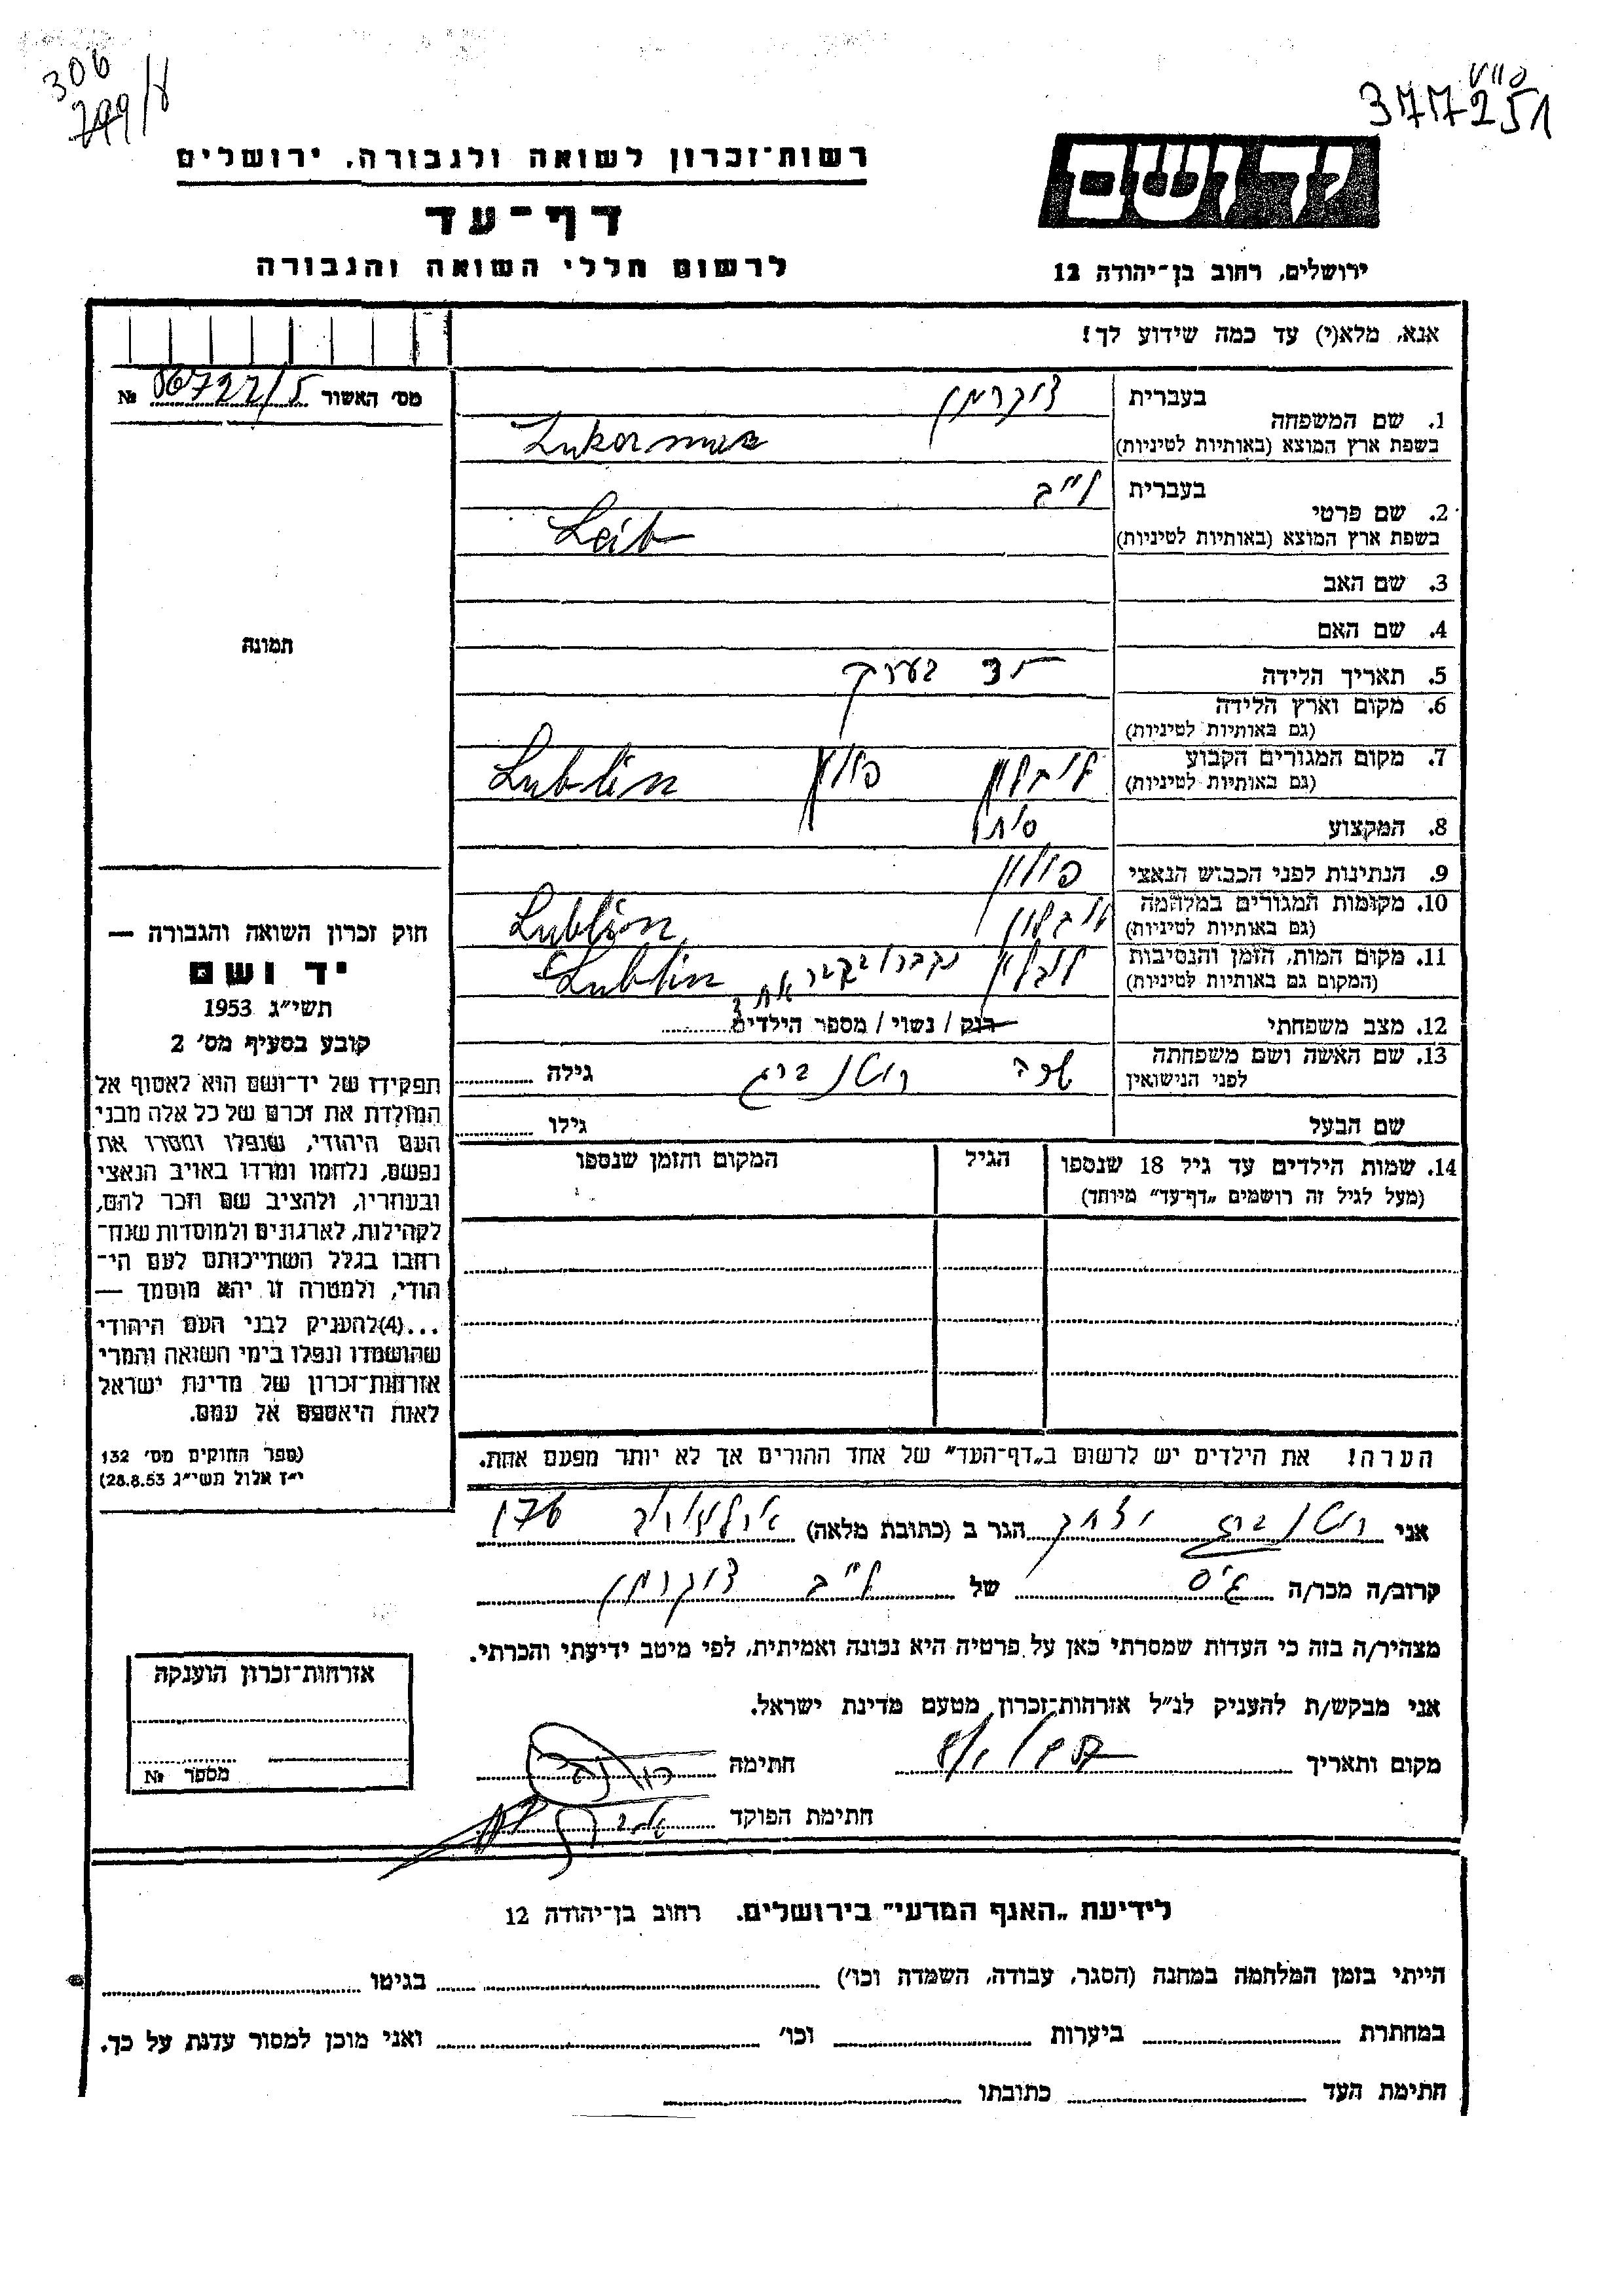 306
799/ל
377251
רשות־זכרון לשואה ולגבורה, ירושלים
דף־עד
לרשום חללי השואה והגבורה
יד ושם
ירושלים, רחוב בן־יהודה 12
אנא, מלא(י) עד כמה שידוע לך!
מס' האשור 06722/5 №
תמונה
1. שם המשפחה
בעברית צוקרמן
בשפת ארץ המוצא (באותיות לטיניות) Zukerman
2. שם פרטי
בעברית לייב
בשפת ארץ המוצא (באותיות לטיניות) Leib
3. שם האב
4. שם האם
5. תאריך הלידה בערך
6. מקום וארץ הלידה
(גם באותיות לטיניות)
7. מקום המגורים הקבוע לובלין פולין Lublin
(גם באותיות לטיניות)
8. המקצוע
9. הנתינות לפני הכבוש הנאצי פולין
10. מקומות המגורים במלחמה לובלין Lublin
(גם באותיות לטיניות)
11. מקום המות, הזמן והנסיבות לובלין Lublin
(המקום גם באותיות לטיניות)
12. מצב משפחתי רוק / נשוי / מספר הילדים
13. שם האשה ושם משפחתה רוטנברג גילה
לפני הנישואין
שם הבעל גילו
14. שמות הילדים עד גיל 18 שנספו הגיל המקום והזמן שנספו
(מעל לגיל זה רושמים „דף־עד" מיוחד)
חוק זכרון השואה והגבורה —
יד ושם
תשי"ג 1953
קובע בסעיף מס' 2
תפקידו של יד־ושם הוא לאסוף אל
המולדת את זכרם של כל אלה מבני
העם היהודי, שנפלו ומסרו את
נפשם, נלחמו ומרדו באויב הנאצי
ובעוזריו, ולהציב שם וזכר להם,
לקהילות, לארגונים ולמוסדות שנח־
רבו בגלל השתייכותם לעם הי־
הודי, ולמטרה זו יהא מוסמך —
...(4)להעניק לבני העם היהודי
שהושמדו ונפלו בימי השואה והמרי
אזרחות־זכרון של מדינת ישראל
לאות היאספם אל עמם.
(ספר החוקים מס' 132
י"ז אלול תשי"ג 28.8.53)
הערה! את הילדים יש לרשום ב„דף־העד" של אחד ההורים אך לא יותר מפעם אחת.
אני רוטנברג יצחק הגר ב (כתובת מלאה) 176
קרוב/ה מכר/ה גיס של לייב צוקרמן
מצהיר/ה בזה כי העדות שמסרתי כאן על פרטיה היא נכונה ואמיתית, לפי מיטב ידיעתי והכרתי.
אני מבקש/ת להעניק לנ"ל אזרחות־זכרון מטעם מדינת ישראל.
מקום ותאריך חתימה
חתימת הפוקד
אזרחות־זכרון הוענקה
מספר №
לידיעת „האגף המדעי" בירושלים. רחוב בן־יהודה 12
הייתי בזמן המלחמה במחנה (הסגר, עבודה, השמדה וכו') בגיטו
במחתרת ביערות וכו' ואני מוכן למסור עדות על כך.
חתימת העד כתובתו